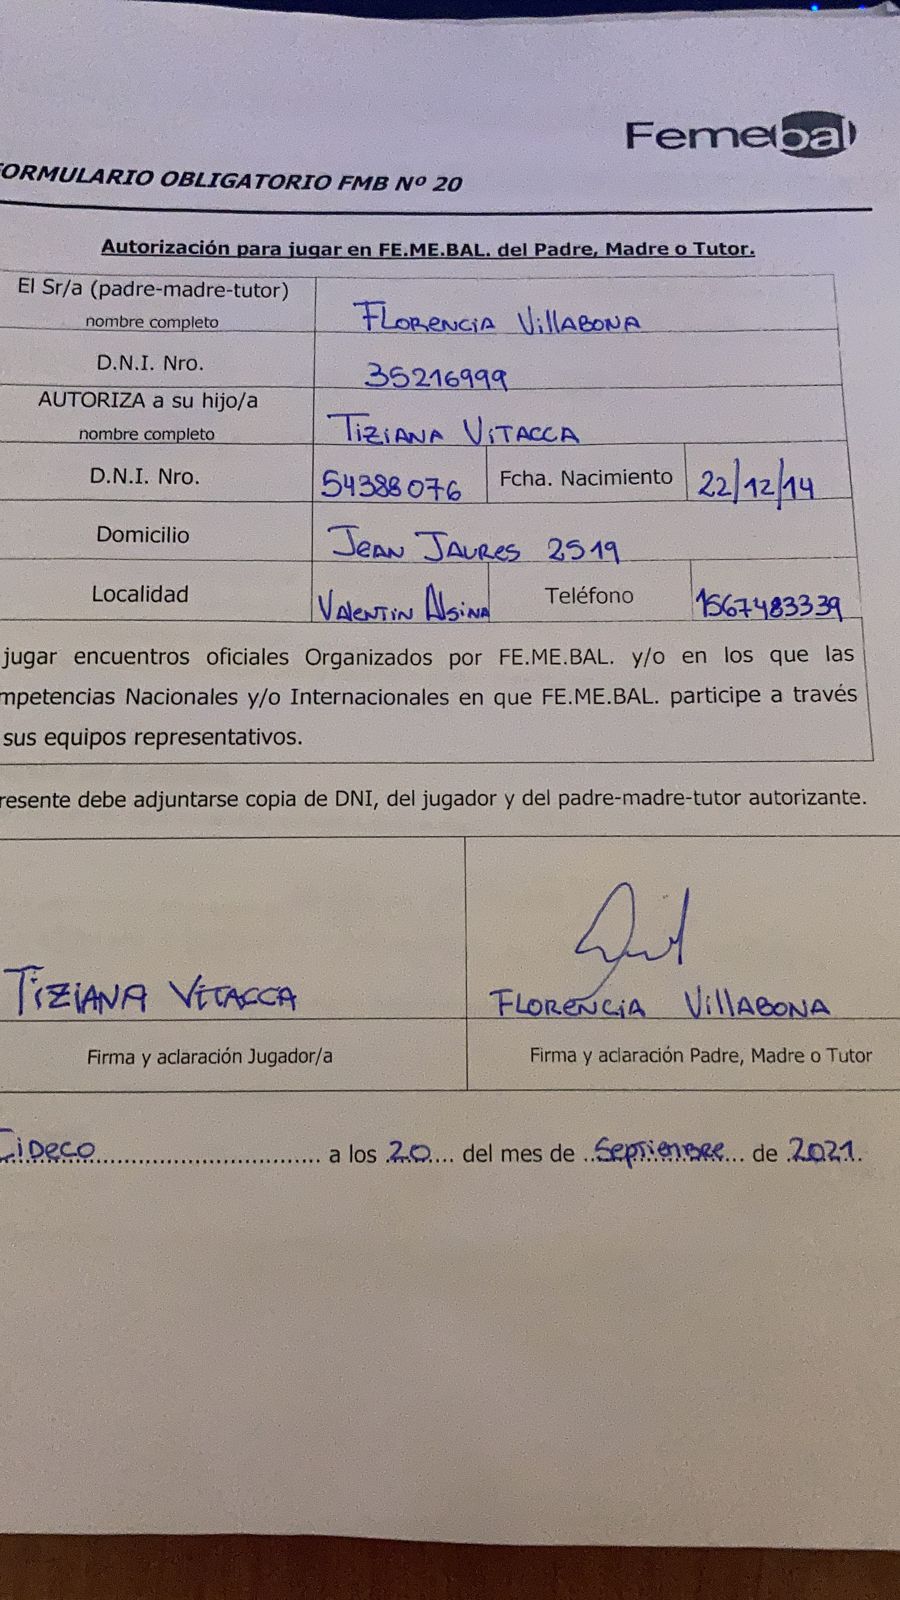 Femebal
FORMULARIO OBLIGATORIO FMB Nº 20
Autorización para jugar en FE.ME.BAL. del Padre, Madre o Tutor.
El Sr/a (padre-madre-tutor)
nombre completo
Florencia Villabona
D.N.I. Nro.
35216999
AUTORIZA a su hijo/a
nombre completo
Tiziana Vitacca
D.N.I. Nro.
54388076
Fcha. Nacimiento
22/12/14
Domicilio
Jean Jaures 2519
Localidad
Valentin Alsina
Teléfono
1567483339
jugar encuentros oficiales Organizados por FE.ME.BAL. y/o en los que las
mpetencias Nacionales y/o Internacionales en que FE.ME.BAL. participe a través
sus equipos representativos.
resente debe adjuntarse copia de DNI, del jugador y del padre-madre-tutor autorizante.
Tiziana Vitacca
Florencia Villabona
Firma y aclaración Jugador/a
Firma y aclaración Padre, Madre o Tutor
Cideco a los 20 del mes de Septiembre de 2021.